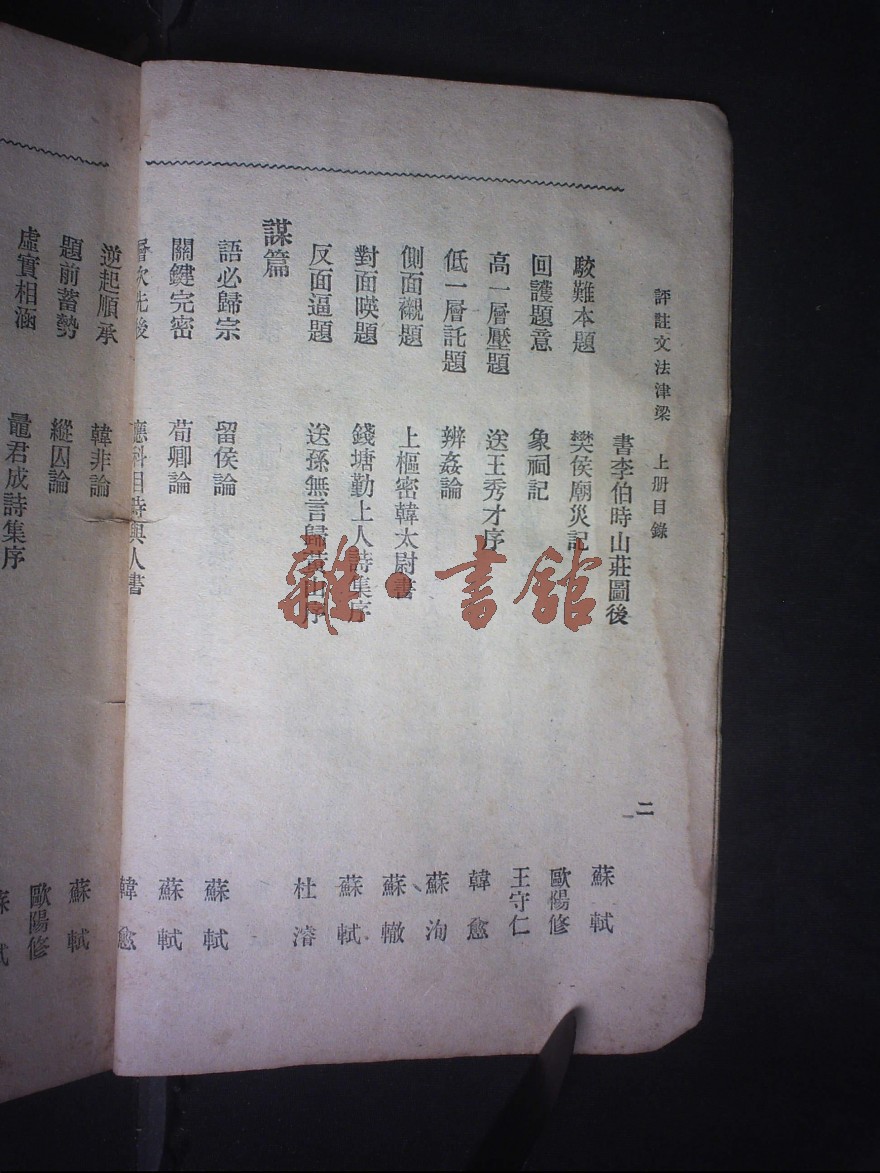 評註文法津梁 上册目錄 二
書李伯時山莊圖後 蘇軾
駁難本題 樊侯廟災記 歐陽修
回護題意 象祠記 王守仁
高一層壓題 送王秀才序 韓愈
低一層託題 辨姦論 蘇洵
側面襯題 上樞密韓太尉書 蘇轍
對面暎題 錢塘勤上人詩集序 蘇軾
反面逼題 送孫無言歸黃山序 杜濬
謀篇
語必歸宗 留侯論 蘇軾
關鍵完密 荀卿論 蘇軾
層次先後 應科目時與人書 韓愈
逆起順承 韓非論 蘇軾
題前蓄勢 縱囚論 歐陽修
虛實相涵 鼂君成詩集序 蘇軾
雜·書館